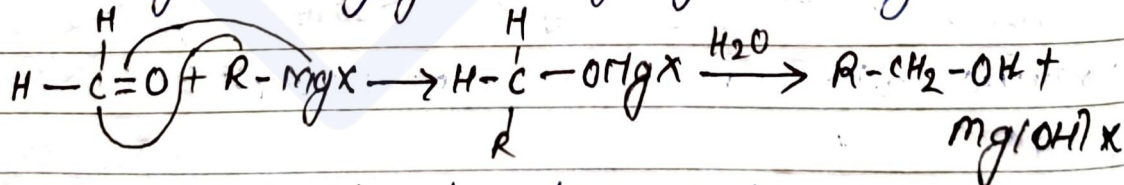 H H
H-C=O + R-MgX → H-C-OMgX H2O → R-CH2-OH +
R Mg(OH)X